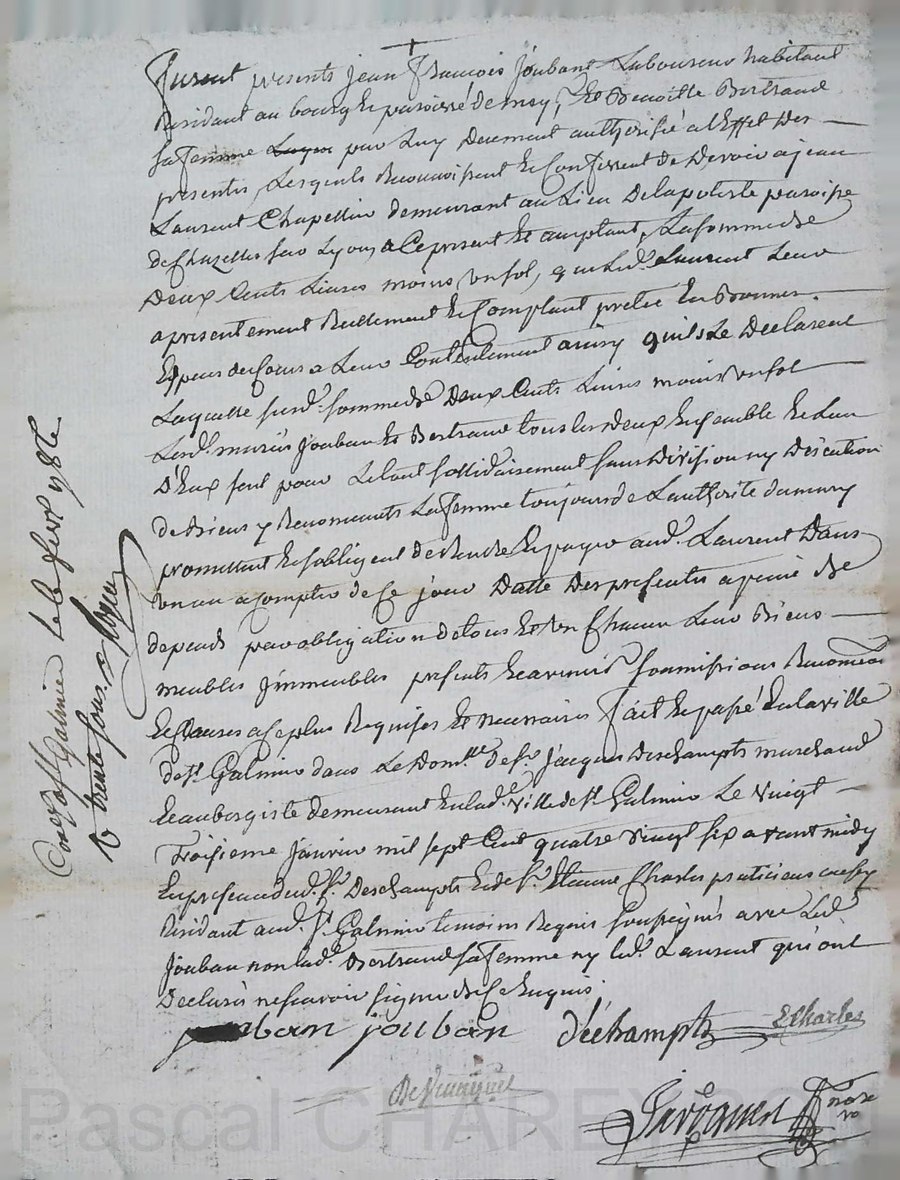 furent presents jean francois jouban Laboureur habitant
Residant au bourg et paroisse de et Benoitte Bertrand
sa femme par Luy Duement authorisée a l'Effet Des
presentes, Lesquels Reconnoissent et Confessent De Devoir a jean
Laurent demeurant au Lieu De paroisse
de Chazelles sur Lyon, a Ce present et acceptant, La somme de
Deux Cents Livres moins un sol, que Led. Laurent Leur
a presentement Reellement et Comptant preté En Bonnes
Especes de Cours a Leur Contentement ainsy quils Le Declarent
Laquelle susd. somme de Deux Cents Livres moins un sol
Lesd. mariés jouban et Bertrand tous les deux Ensemble et L'un
D'Eux seul pour Le tout sollidairement sans Division ny Discution
de Biens y Renonceants La femme toujours de L'authorité du mary
promettent et s'obligent de Rendre et payer aud. Laurent Dans
un an a Compter de Ce jour Datte Des presentes a peine de
depends par obligation de tous et un Chacun Leur Biens
meubles jmmeubles presents et avenir soumissions Renon͠ca͠on
et Clauses a Ce plus Requises et necessaires fait et passé En la ville
de St. Galmier dans Le Dom.lle de sr. jacques Deschampts marchand
et aubergiste demeurant En lad.e ville de St. Galmier Le vingt
Troisieme janvier mil sept Cent quatre vingt six avant midy
En presence dud. sr. Deschampts Et de sr. Etienne Charles praticiens
Residant aud. St. Galmier temoins Requis soussignés avec Led.
jouban non lad.e Bertrand sa femme ny led. Laurent qui ont
Declarés ne scavoir signer de Ce Enquis.
jouban déchampts ECharles
Con.lé a St. Galmier Le 6 fevr 1786
R trente sous
Pascal CHAREY